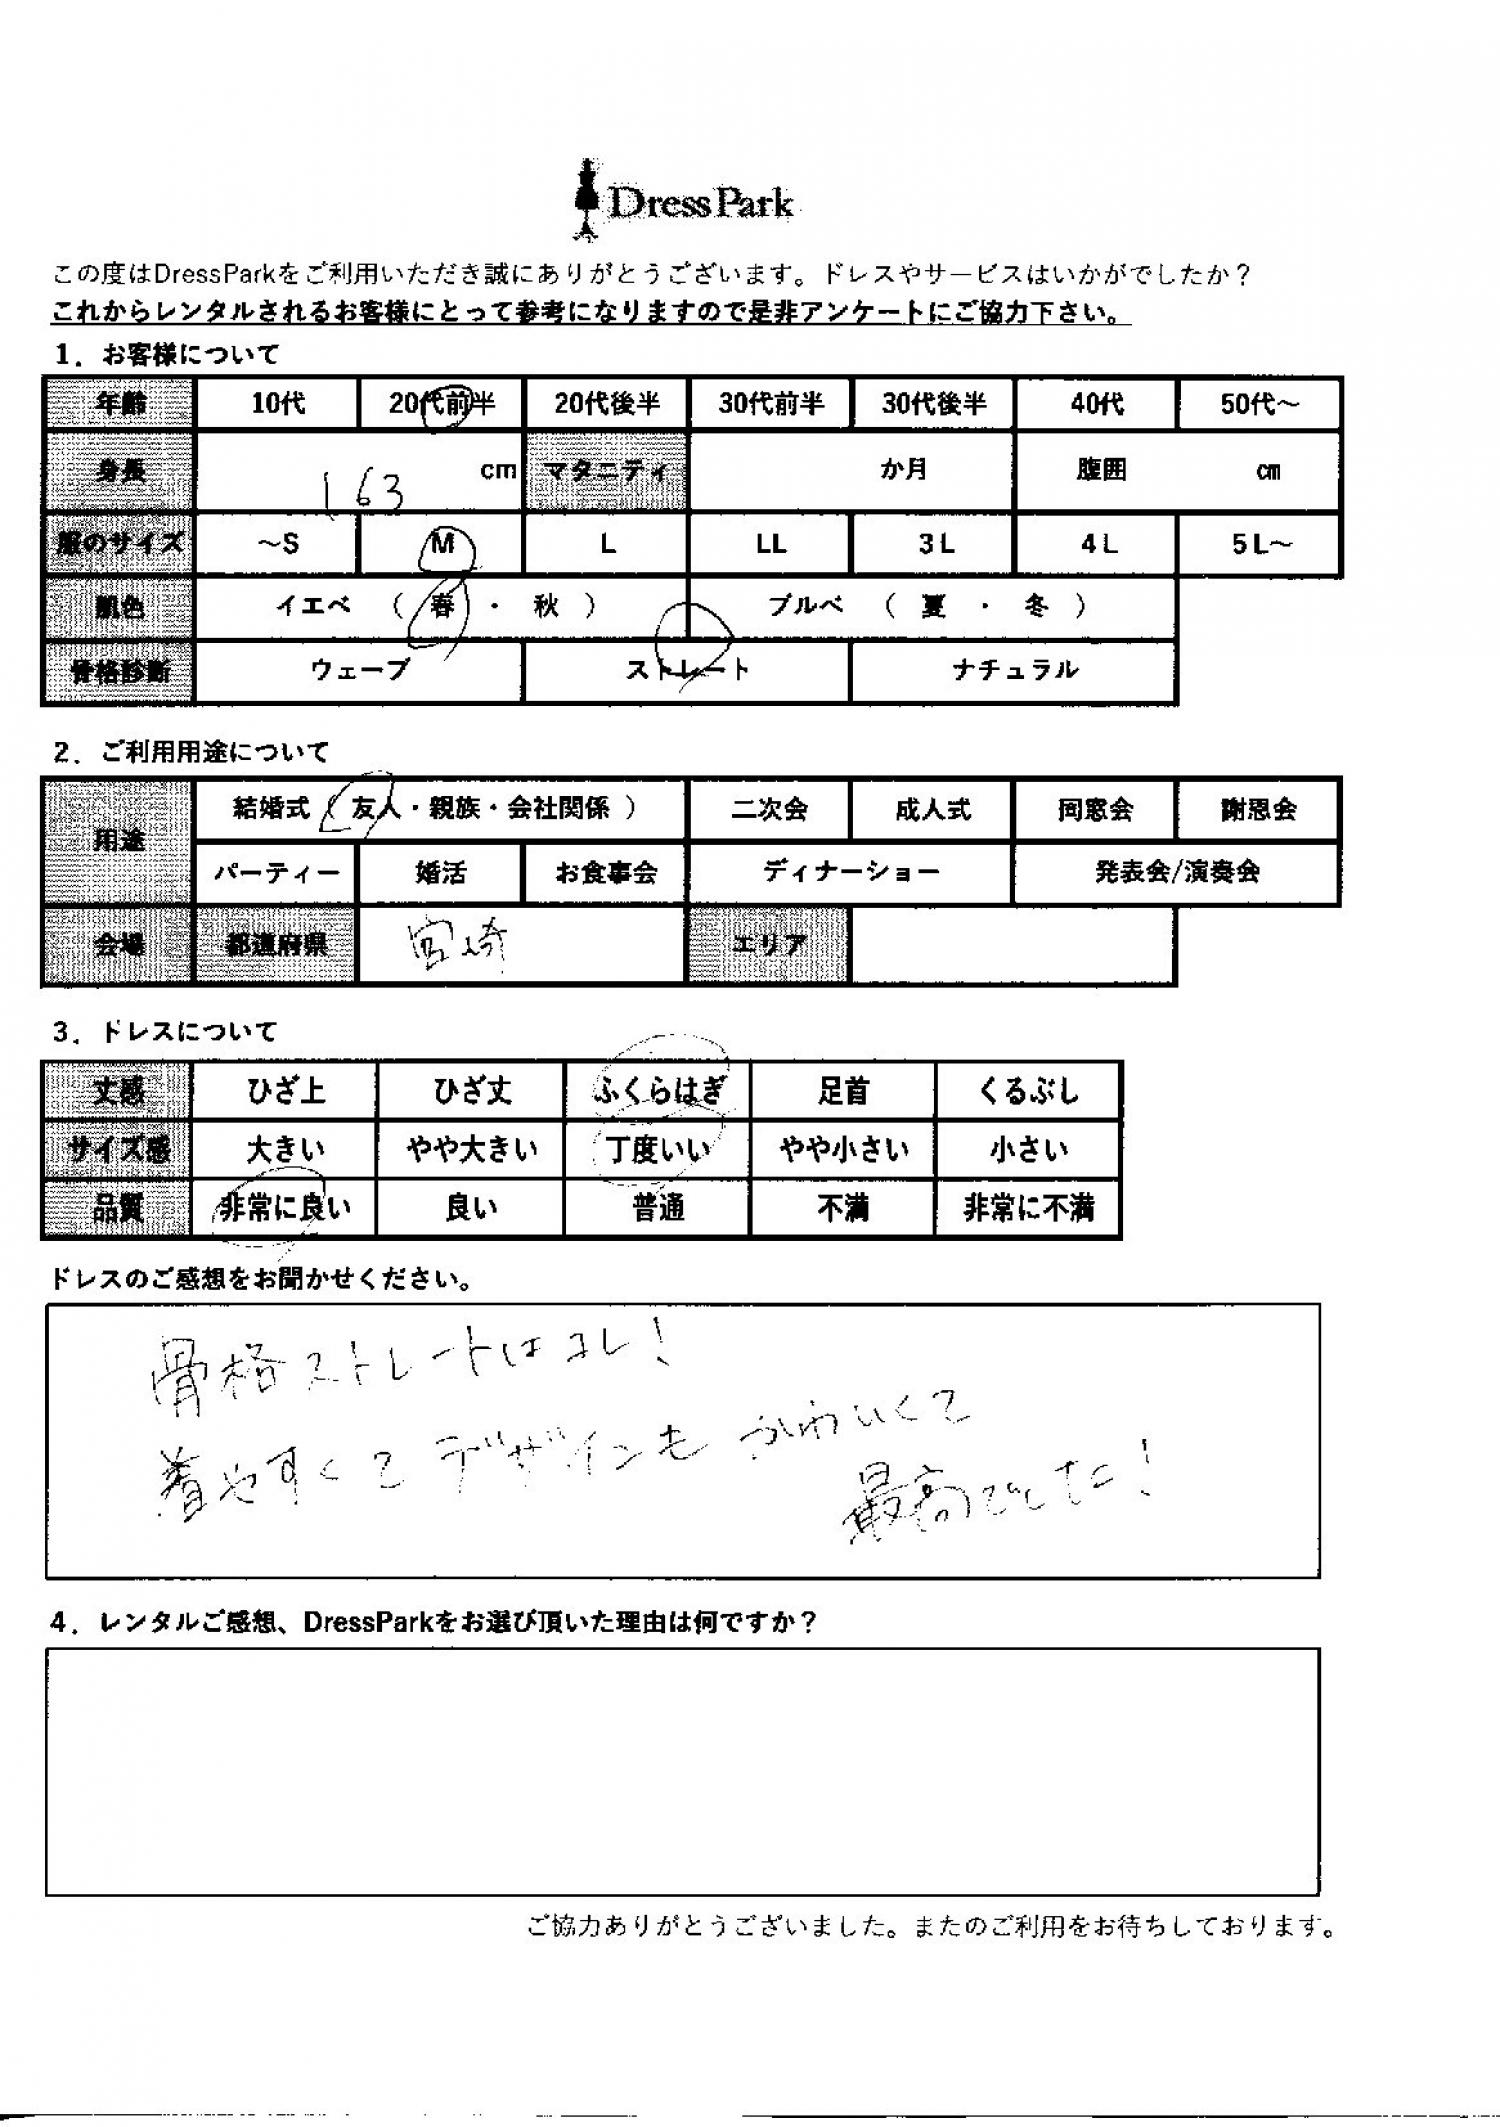 DressPark
この度はDressParkをご利用いただき誠にありがとうございます。ドレスやサービスはいかがでしたか？
これからレンタルされるお客様にとって参考になりますので是非アンケートにご協力下さい。
1．お客様について
年齢 10代 20代前半 20代後半 30代前半 30代後半 40代 50代～
身長 163 cm マタニティ か月 腹囲 cm
服のサイズ ～S M L LL 3L 4L 5L～
肌色 イエベ （ 春 ・ 秋 ） ブルベ （ 夏 ・ 冬 ）
骨格診断 ウェーブ ストレート ナチュラル
2．ご利用用途について
用途 結婚式（ 友人・親族・会社関係 ） 二次会 成人式 同窓会 謝恩会
パーティー 婚活 お食事会 ディナーショー 発表会/演奏会
会場 都道府県 宮崎 エリア
3．ドレスについて
丈感 ひざ上 ひざ丈 ふくらはぎ 足首 くるぶし
サイズ感 大きい やや大きい 丁度いい やや小さい 小さい
品質 非常に良い 良い 普通 不満 非常に不満
ドレスのご感想をお聞かせください。
骨格ストレートはコレ！
着やすくてデザインもかわいくて
最高でした！
4．レンタルご感想、DressParkをお選び頂いた理由は何ですか？
ご協力ありがとうございました。またのご利用をお待ちしております。